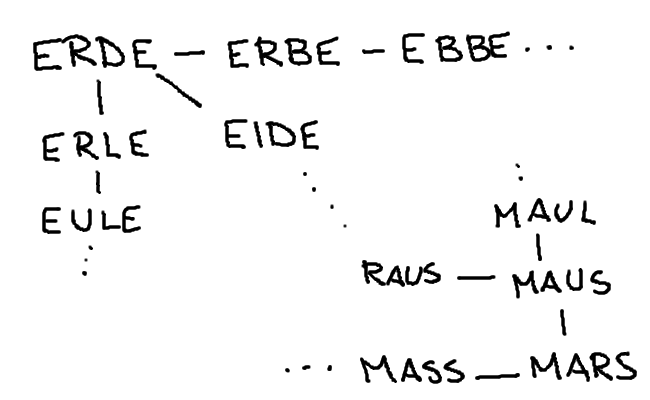 ERDE – ERBE – EBBE...
ERLE
EIDE
EULE
MAUL
RAUS – MAUS
... MASS – MARS